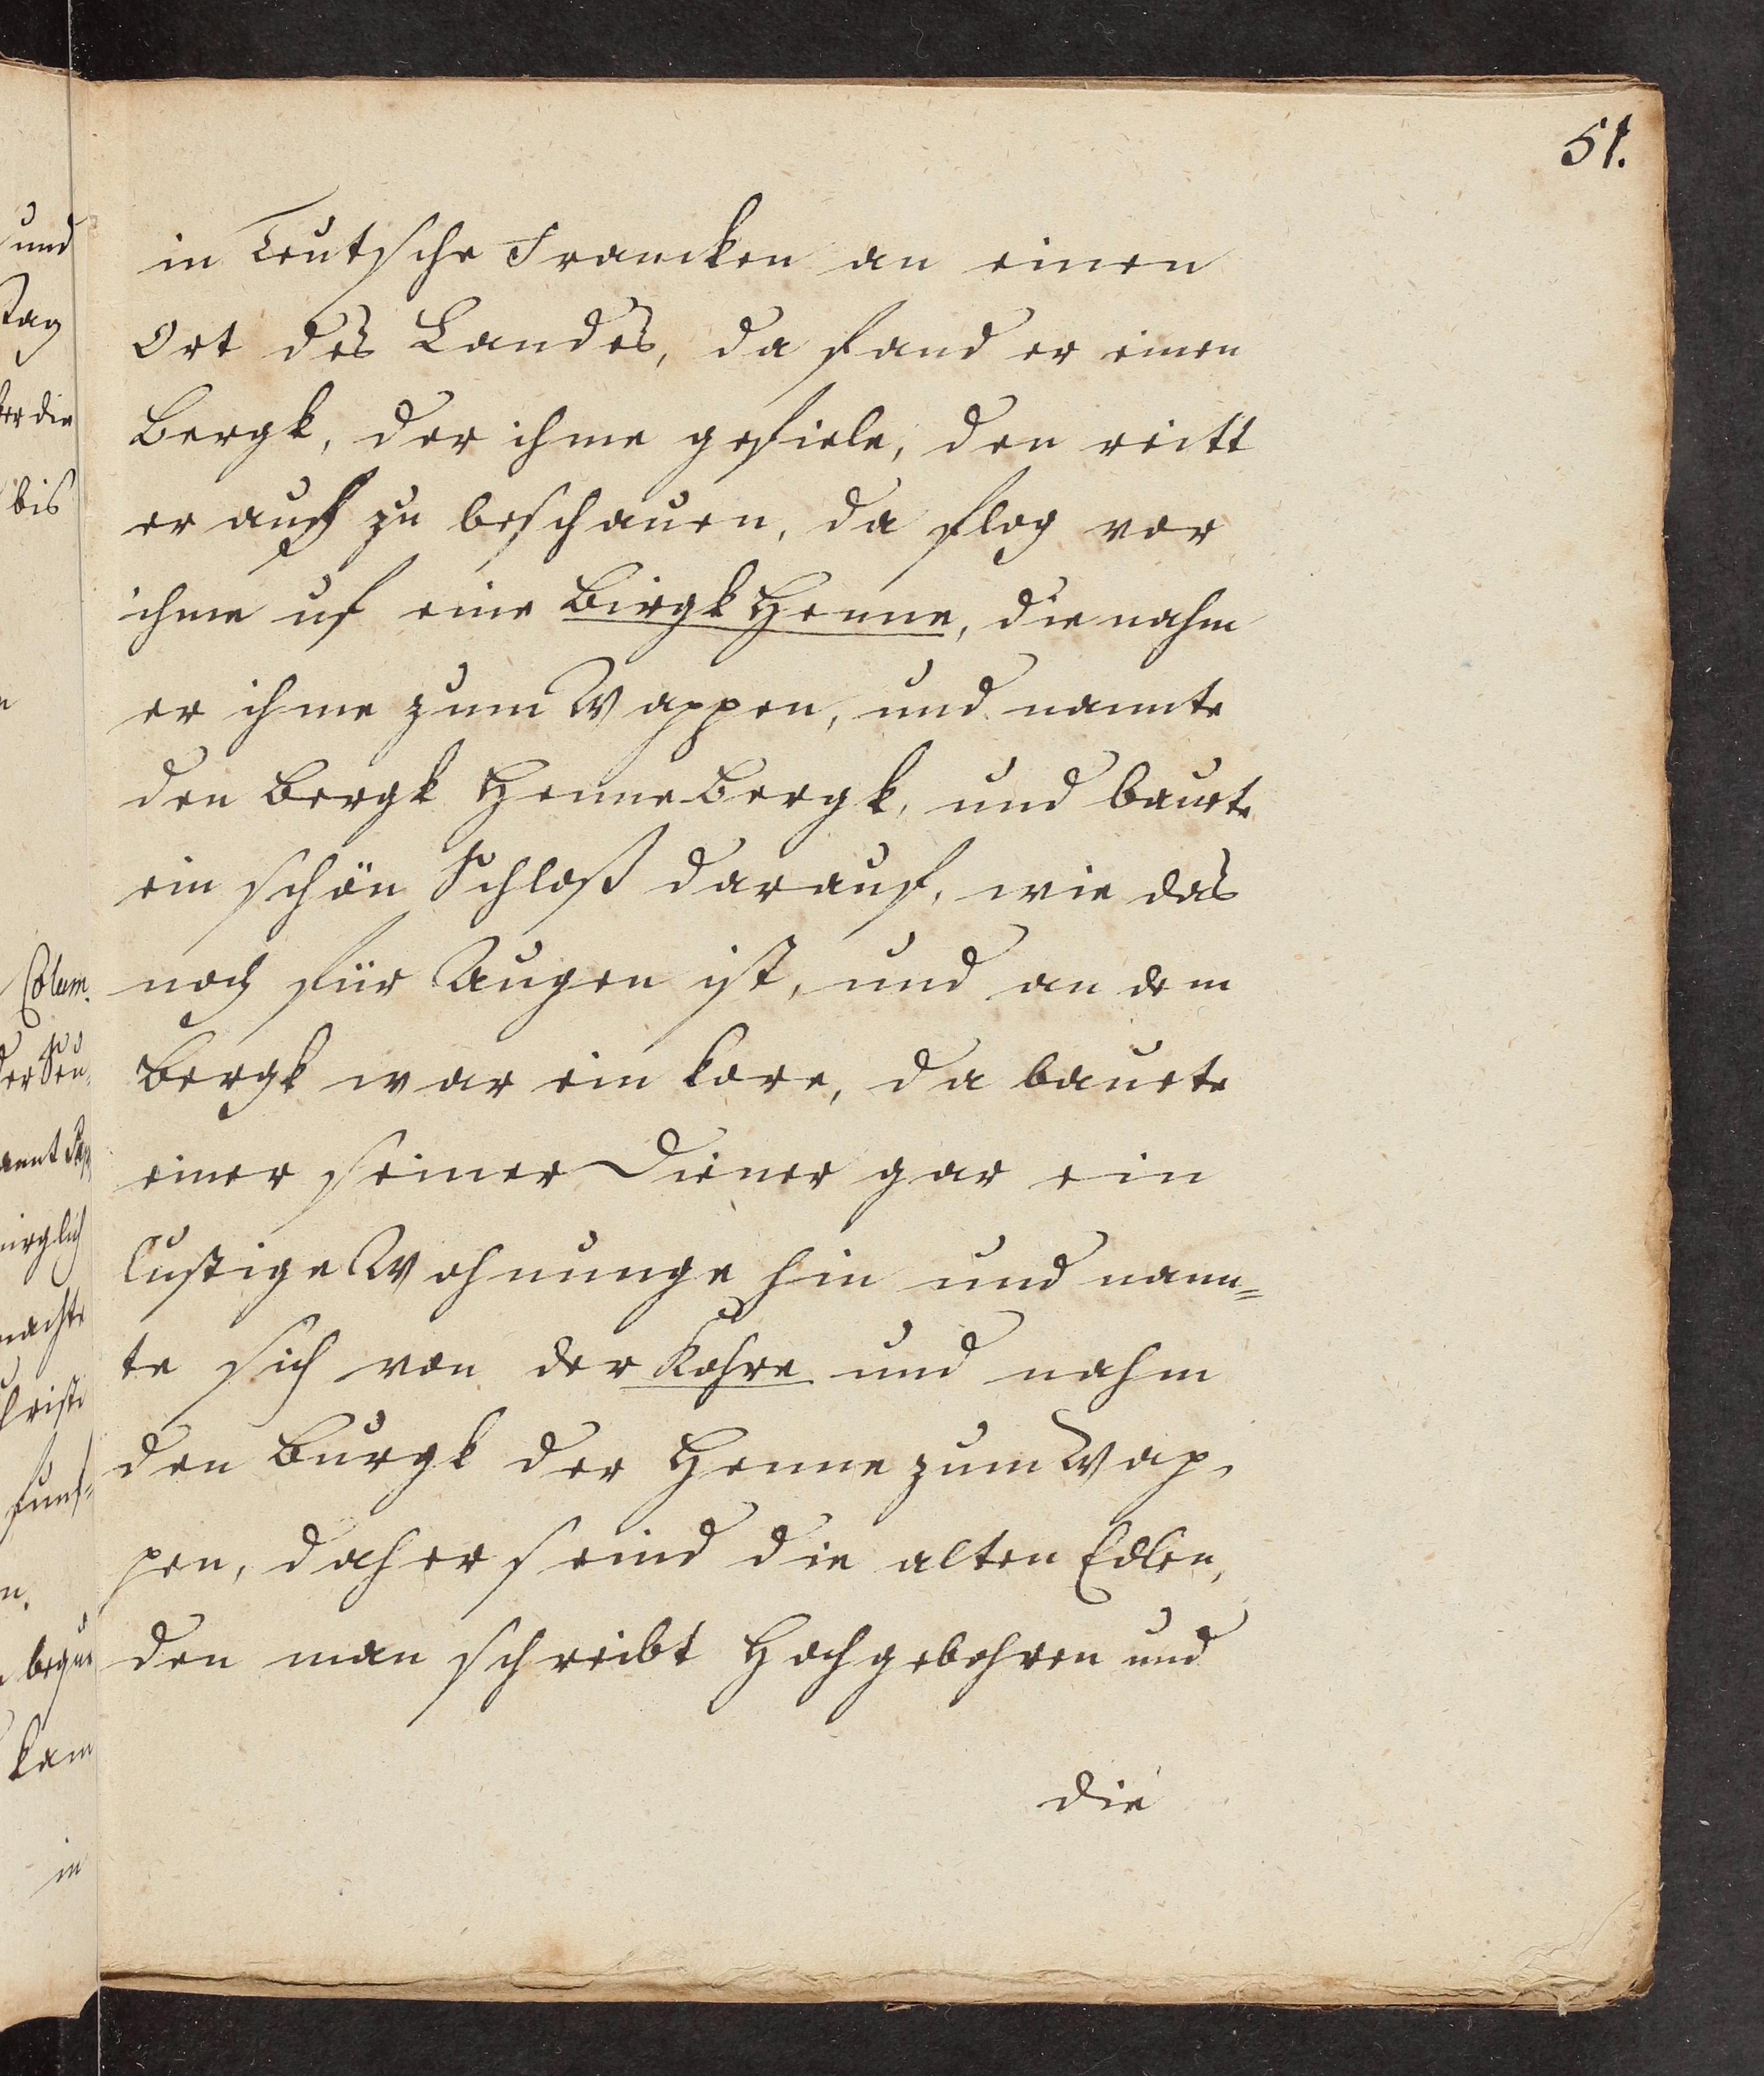 51.
in Teutsche Francken an einen
Ort des Landes, da fand er einen
Bergk, der ihme gefiele, den reitt
er auch zu beschauen, da flog vor
ihme uf eine Birgk Henne, die nahm
er ihme zum Wappen, und nannte
den Bergk Hennebergk, und bauete
ein schön Schloß darauf, wie das
noch für Augen ist, und an dem
Bergk war ein Kore, da bauete
einer seiner Diener gar ein
lustige Wohnunge hin und nann=
te sich von der Kohre und nahm
den Burgk der Henne zum Wap-
pen, daher seind die alten Edlen,
den man schreibt Hochgebohren und
die
und
Tag
er die
bis
Colum.
kam
in